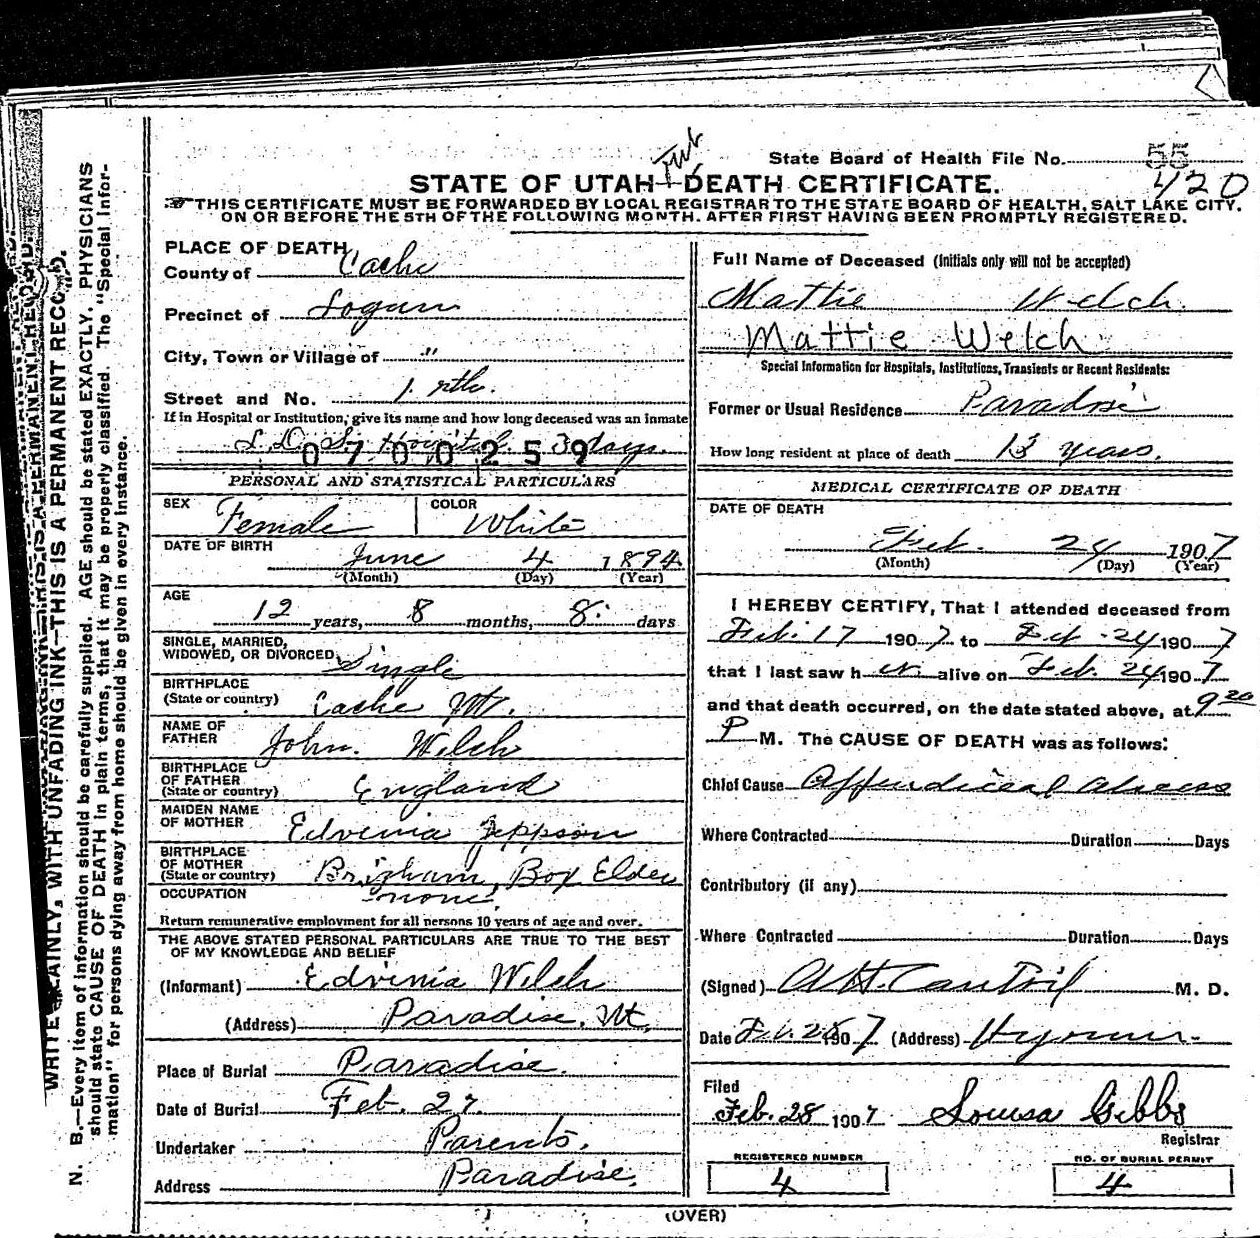 Feb
State Board of Health File No. 55
420
STATE OF UTAH—DEATH CERTIFICATE.
THIS CERTIFICATE MUST BE FORWARDED BY LOCAL REGISTRAR TO THE STATE BOARD OF HEALTH, SALT LAKE CITY.
ON OR BEFORE THE 5TH OF THE FOLLOWING MONTH. AFTER FIRST HAVING BEEN PROMPTLY REGISTERED.
WRITE PLAINLY, WITH UNFADING INK—THIS IS A PERMANENT RECORD.
N. B.—Every item of information should be carefully supplied. AGE should be stated EXACTLY. PHYSICIANS
should state CAUSE OF DEATH in plain terms, that it may be properly classified. The "Special Infor-
mation" for persons dying away from home should be given in every instance.
PLACE OF DEATH
County of Cache
Precinct of Logan
City, Town or Village of "
Street and No. 1 nth.
If in Hospital or Institution, give its name and how long deceased was an inmate
L. D. S. Hospital. 3 days.
0700259
PERSONAL AND STATISTICAL PARTICULARS
SEX Female COLOR White
DATE OF BIRTH June 4 1894
(Month) (Day) (Year)
AGE
12 years, 8 months, 8 days
SINGLE, MARRIED,
WIDOWED, OR DIVORCED Single
BIRTHPLACE
(State or country) Cache Ut.
NAME OF
FATHER John Welch
BIRTHPLACE
OF FATHER
(State or country) England
MAIDEN NAME
OF MOTHER Edvenia Jeppson
BIRTHPLACE
OF MOTHER
(State or country) Brigham, Box Elder
OCCUPATION none.
Return remunerative employment for all persons 10 years of age and over.
THE ABOVE STATED PERSONAL PARTICULARS ARE TRUE TO THE BEST
OF MY KNOWLEDGE AND BELIEF
(Informant) Edvinia Welch
(Address) Paradise, Ut.
Place of Burial Paradise.
Date of Burial Feb. 27.
Undertaker Parents.
Address Paradise.
Full Name of Deceased (Initials only will not be accepted)
Mattie Welch.
Mattie Welch
Special Information for Hospitals, Institutions, Transients or Recent Residents:
Former or Usual Residence Paradise
How long resident at place of death 13 years.
MEDICAL CERTIFICATE OF DEATH
DATE OF DEATH
Feb. 24 1907
(Month) (Day) (Year)
I HEREBY CERTIFY, That I attended deceased from
Feb. 17 1907 to Feb. 24 1907
that I last saw h er alive on Feb. 24 1907
and that death occurred, on the date stated above, at 9 20
P M. The CAUSE OF DEATH was as follows:
Chief Cause Appendiceal abscess
Where Contracted Duration Days
Contributory (if any)
Where Contracted Duration Days
(Signed) M. D.
Date Feb. 1907 (Address) Hyrum
Filed
Feb. 28 1907 Louisa Gibbs
Registrar
REGISTERED NUMBER NO. OF BURIAL PERMIT
4 4
(OVER)